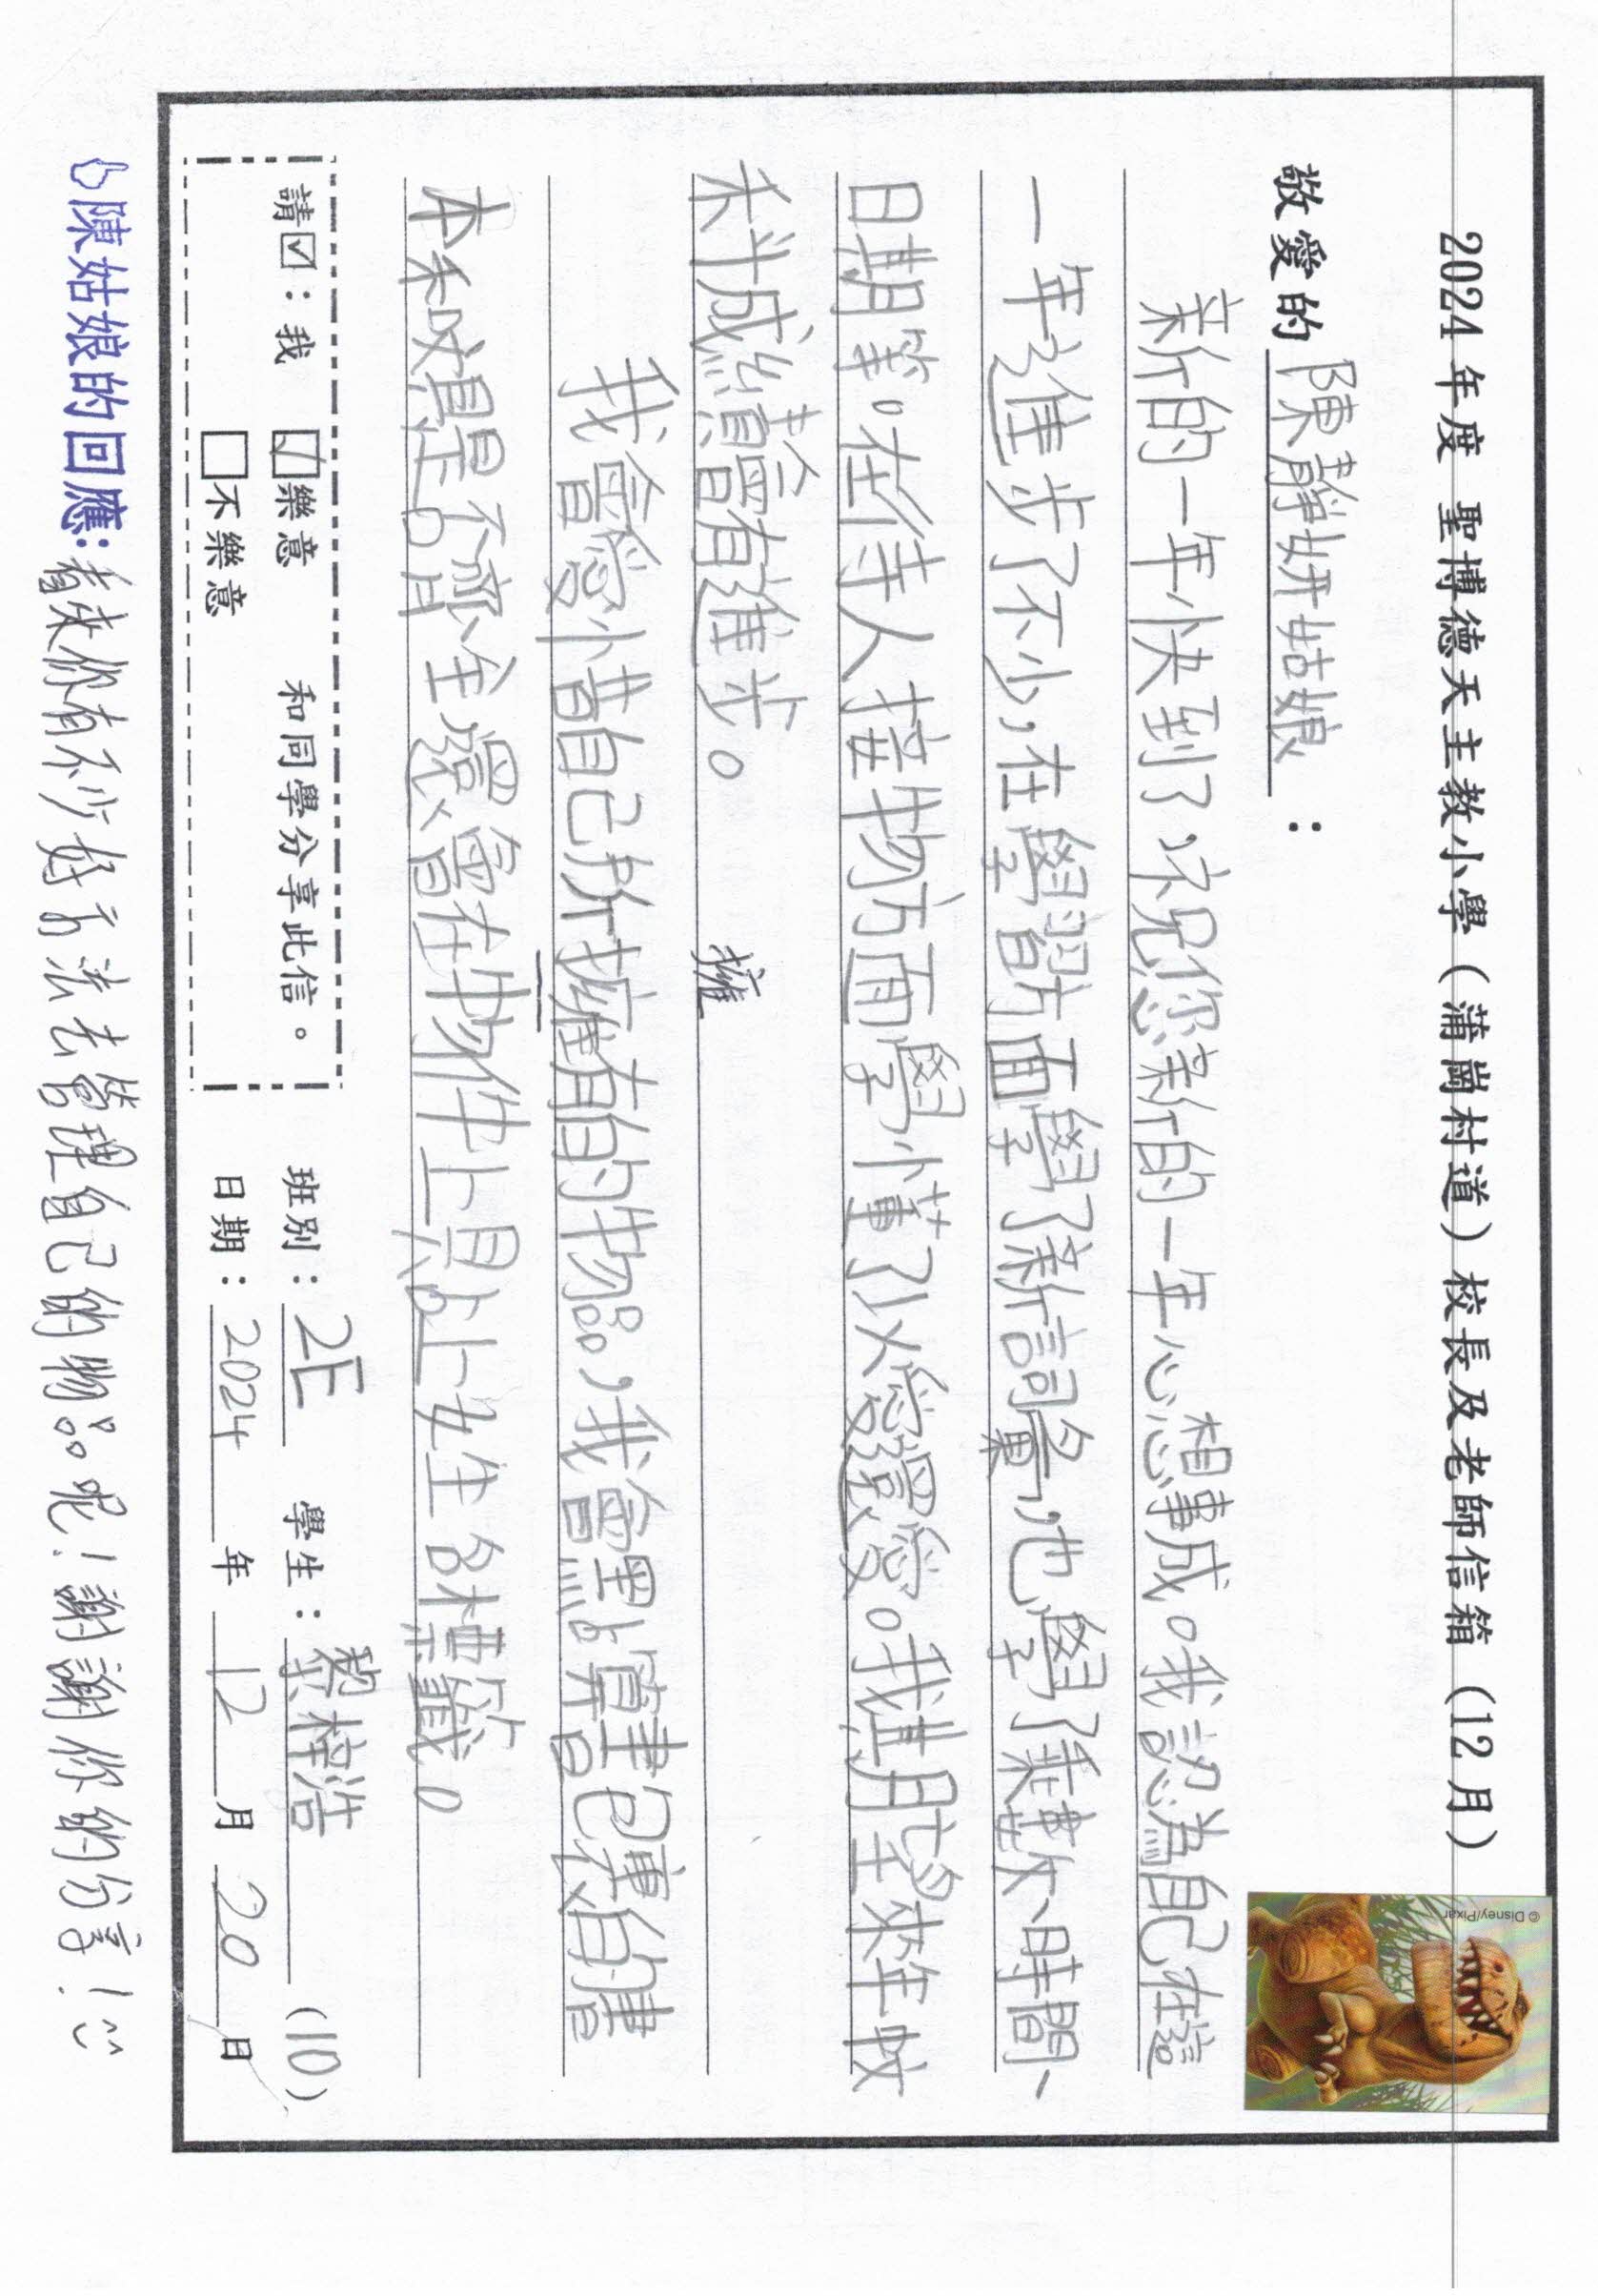 2024年度 聖博德天主教小學（蒲崗村道）校長及老師信箱（12月）
© Disney/Pixar
敬愛的 陳靜妍姑娘 ：
新的一年快到了,祝您新的一年心想事成。我認為自己在這
一年進步了不少,在學習方面學了新詞彙,也學了乘數、時間、
日期等。在待人接物方面學懂了以愛還愛。我期望來年數
科成績會有進步。
擁
我會愛惜自己所擁有的物品,我會點算書包裏的書
本和文具是否齊全,還會在物件上貼上姓名標籤。
請☑：我 ☑樂意 和同學分享此信。
□不樂意
班別：2E 學生：黎梓浩 (10)
日期：2024 年 12 月 20 日
陳姑娘的回應:看來你有不少好方法去管理自己的物品呢！謝謝你的分享！